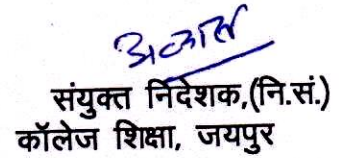 संयुक्त निदेशक,(नि.सं.)
कॉलेज शिक्षा, जयपुर